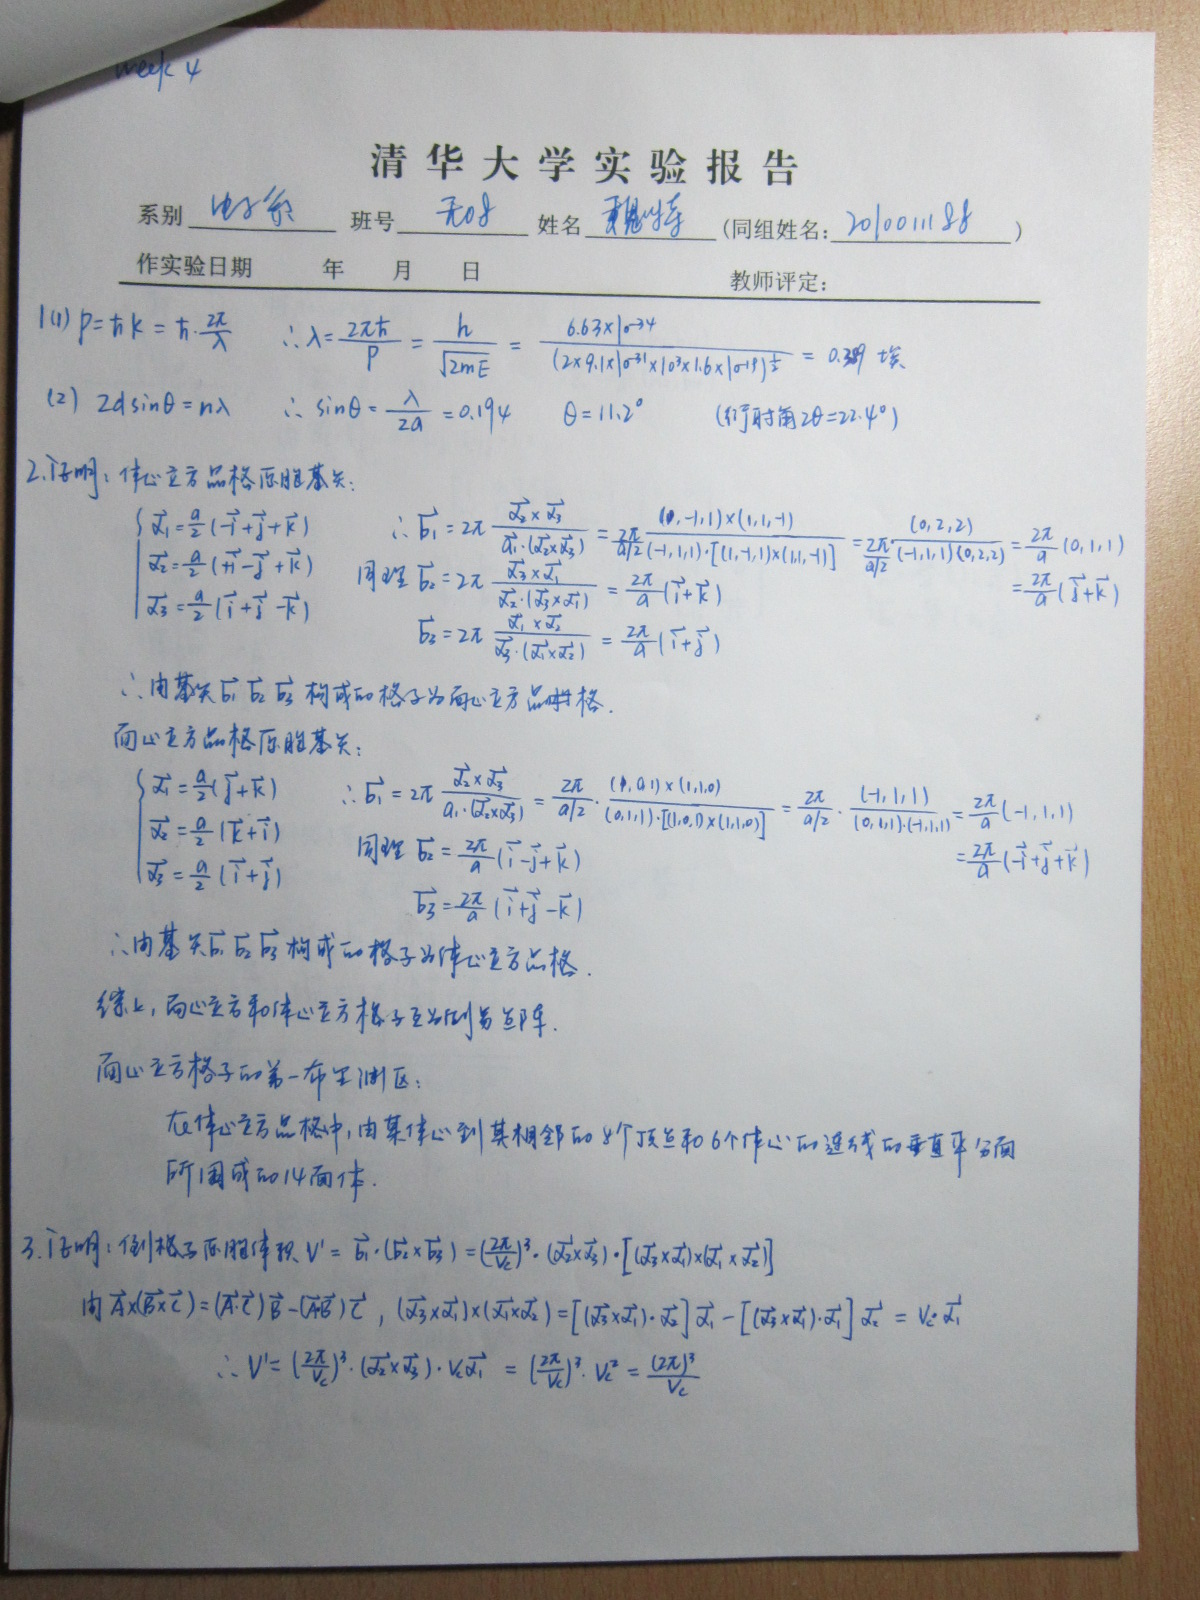 week 4
清华大学实验报告
系别 电子系 班号 无08 姓名 (同组姓名: 2010011188 )
作实验日期 年 月 日 教师评定:
1(1) p=ħk=ħ·2π/λ ∴λ=2πħ/p = h/√(2mE) = 6.63×10^-34/(2×9.1×10^-31×10^3×1.6×10^-19)^(1/2) = 0.389 埃
(2) 2dsinθ=nλ ∴sinθ=λ/2a=0.194 θ=11.2° (衍射角2θ=22.4°)
2.证明: 体心立方晶格原胞基矢:
{ α₁⃗=a/2(-i⃗+j⃗+k⃗) ∴b₁⃗=2π (α₂⃗×α₃⃗)/(α₁⃗·(α₂⃗×α₃⃗)) = 2π/(a/2) (1,-1,1)×(1,1,-1)/((-1,1,1)·[(1,-1,1)×(1,1,-1)]) = 2π/(a/2) (0,2,2)/((-1,1,1)(0,2,2)) = 2π/a (0,1,1)
α₂⃗=a/2(+i⃗-j⃗+k⃗) 同理 b₂⃗=2π (α₃⃗×α₁⃗)/(α₂⃗·(α₃⃗×α₁⃗)) = 2π/a(i⃗+k⃗) =2π/a(j⃗+k⃗)
α₃⃗=a/2(i⃗+j⃗-k⃗) b₃⃗=2π (α₁⃗×α₂⃗)/(α₃⃗·(α₁⃗×α₂⃗)) = 2π/a(i⃗+j⃗)
∴由基矢b₁⃗ b₂⃗ b₃⃗ 构成的格子为面心立方晶格.
面心立方晶格原胞基矢:
{ α₁⃗=a/2(j⃗+k⃗) ∴b₁⃗=2π (α₂⃗×α₃⃗)/(α₁·(α₂⃗×α₃⃗)) = 2π/(a/2) · (1,0,1)×(1,1,0)/((0,1,1)·[(1,0,1)×(1,1,0)]) = 2π/(a/2) · (-1,1,1)/((0,1,1)·(-1,1,1)) = 2π/a(-1,1,1)
α₂⃗=a/2(k⃗+i⃗) 同理 b₂⃗=2π/a(i⃗-j⃗+k⃗) =2π/a(-i⃗+j⃗+k⃗)
α₃⃗=a/2(i⃗+j⃗) b₃⃗=2π/a(i⃗+j⃗-k⃗)
∴由基矢b₁⃗ b₂⃗ b₃⃗ 构成的格子为体心立方晶格.
综上,面心立方和体心立方格子互为倒易点阵.
面心立方格子的第一布里渊区:
在体心立方晶格中,由某体心到其相邻的8个顶点和6个体心的连线的垂直平分面
所围成的14面体.
3.证明: 倒格子原胞体积 V'=b₁⃗·(b₂⃗×b₃⃗)=(2π/Vc)³·(α₂⃗×α₃⃗)·[(α₃⃗×α₁⃗)×(α₁⃗×α₂⃗)]
由A⃗×(B⃗×C⃗)=(A⃗·C⃗)B⃗-(A⃗·B⃗)C⃗, (α₃⃗×α₁⃗)×(α₁⃗×α₂⃗)=[(α₃⃗×α₁⃗)·α₂⃗]α₁⃗-[(α₃⃗×α₁⃗)·α₁⃗]α₂⃗=Vc·α₁⃗
∴V'=(2π/Vc)³·(α₂⃗×α₃⃗)·Vcα₁⃗ = (2π/Vc)³·Vc² = (2π)³/Vc